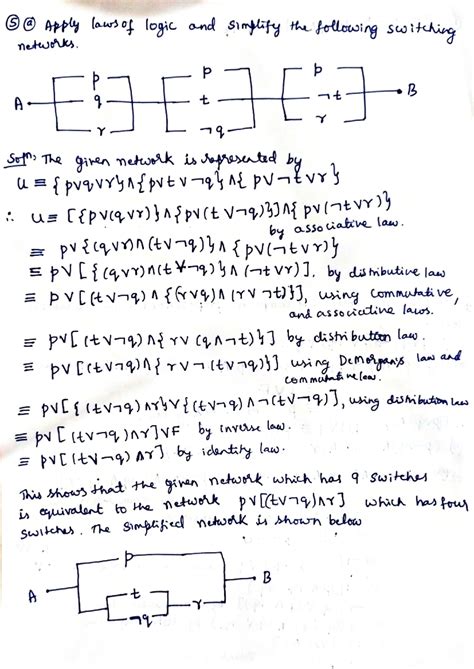 ⑤ ⓐ Apply laws of logic and simplify the following switching
networks.
p p p
A q t ¬t B
r ¬q r
Soln: The given network is represented by
u ≡ {p∨q∨r}∧{p∨t∨¬q}∧{p∨¬t∨r}
∴ u ≡ [{p∨(q∨r)}∧{p∨(t∨¬q)}]∧{p∨(¬t∨r)}
by associative law.
≡ p∨{(q∨r)∧(t∨¬q)}∧{p∨(¬t∨r)}
≡ p∨[{(q∨r)∧(t∨¬q)}∧(¬t∨r)], by distributive law
≡ p∨[(t∨¬q)∧{(r∨q)∧(r∨¬t)}], using commutative,
and associative laws.
≡ p∨[(t∨¬q)∧{r∨(q∧¬t)}] by distribution law.
≡ p∨[(t∨¬q)∧{r∨¬(t∨¬q)}] using DeMorgan's law and
commutative law.
≡ p∨[{(t∨¬q)∧r}∨{(t∨¬q)∧¬(t∨¬q)}], using distribution law
≡ p∨[(t∨¬q)∧r]∨F by inverse law.
≡ p∨[(t∨¬q)∧r] by identity law.
This shows that the given network which has 9 switches
is equivalent to the network p∨[(t∨¬q)∧r] which has four
switches. The simplified network is shown below
p
A B
t
¬q r